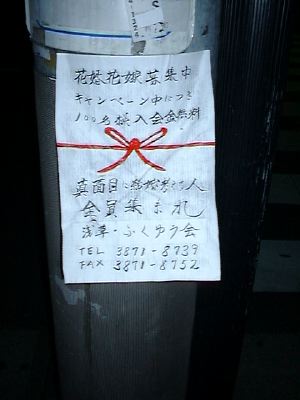 花婿花嫁募集中
キャンペーン中につき
100名様入会金無料
真面目に結婚考える人
全員集まれ
浅草・ふくゆう会
TEL 3871-8739
FAX 3871-8752